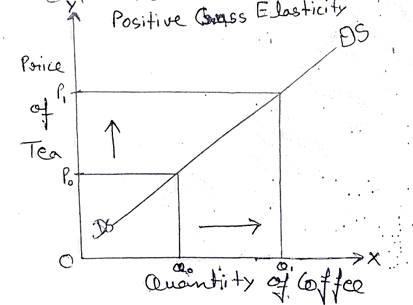 Y
Positive Cross Elasticity
DS
Price
of
Tea
P₁
P₀
DS
O
Q₀
Q₁
X
Quantity of Coffee